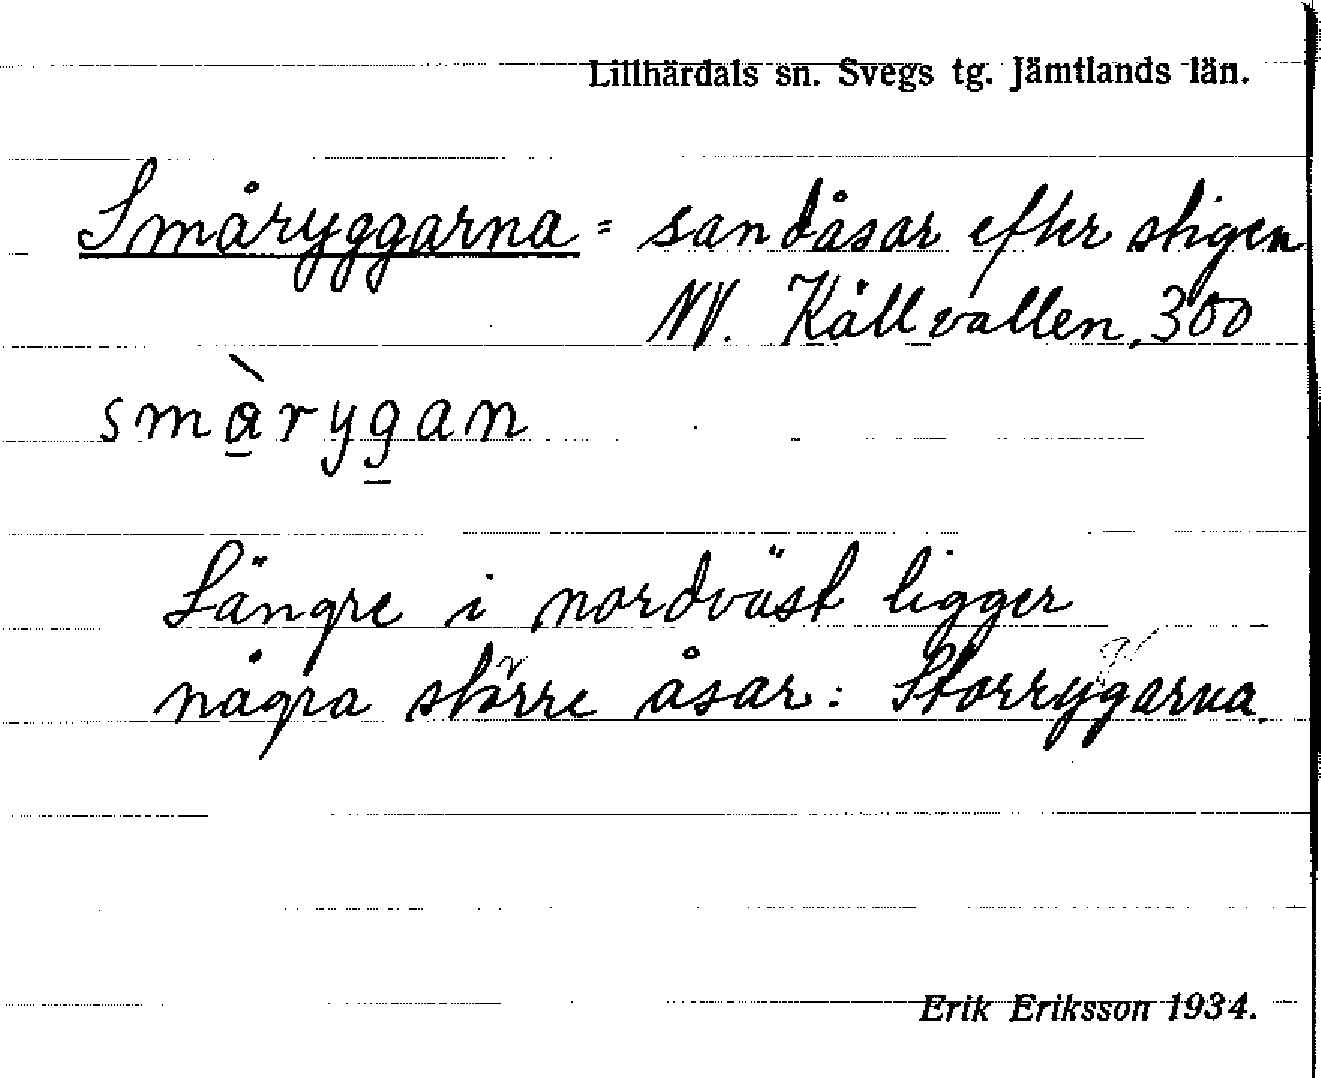 Lillhärdals sn. Svegs tg. Jämtlands län.
Småryggarna = sandåsar efter stigen
NV. Källvallen, 300
smårygan
Längre i nordväst ligger
några större åsar: Storrygarna.
Erik Eriksson 1934.